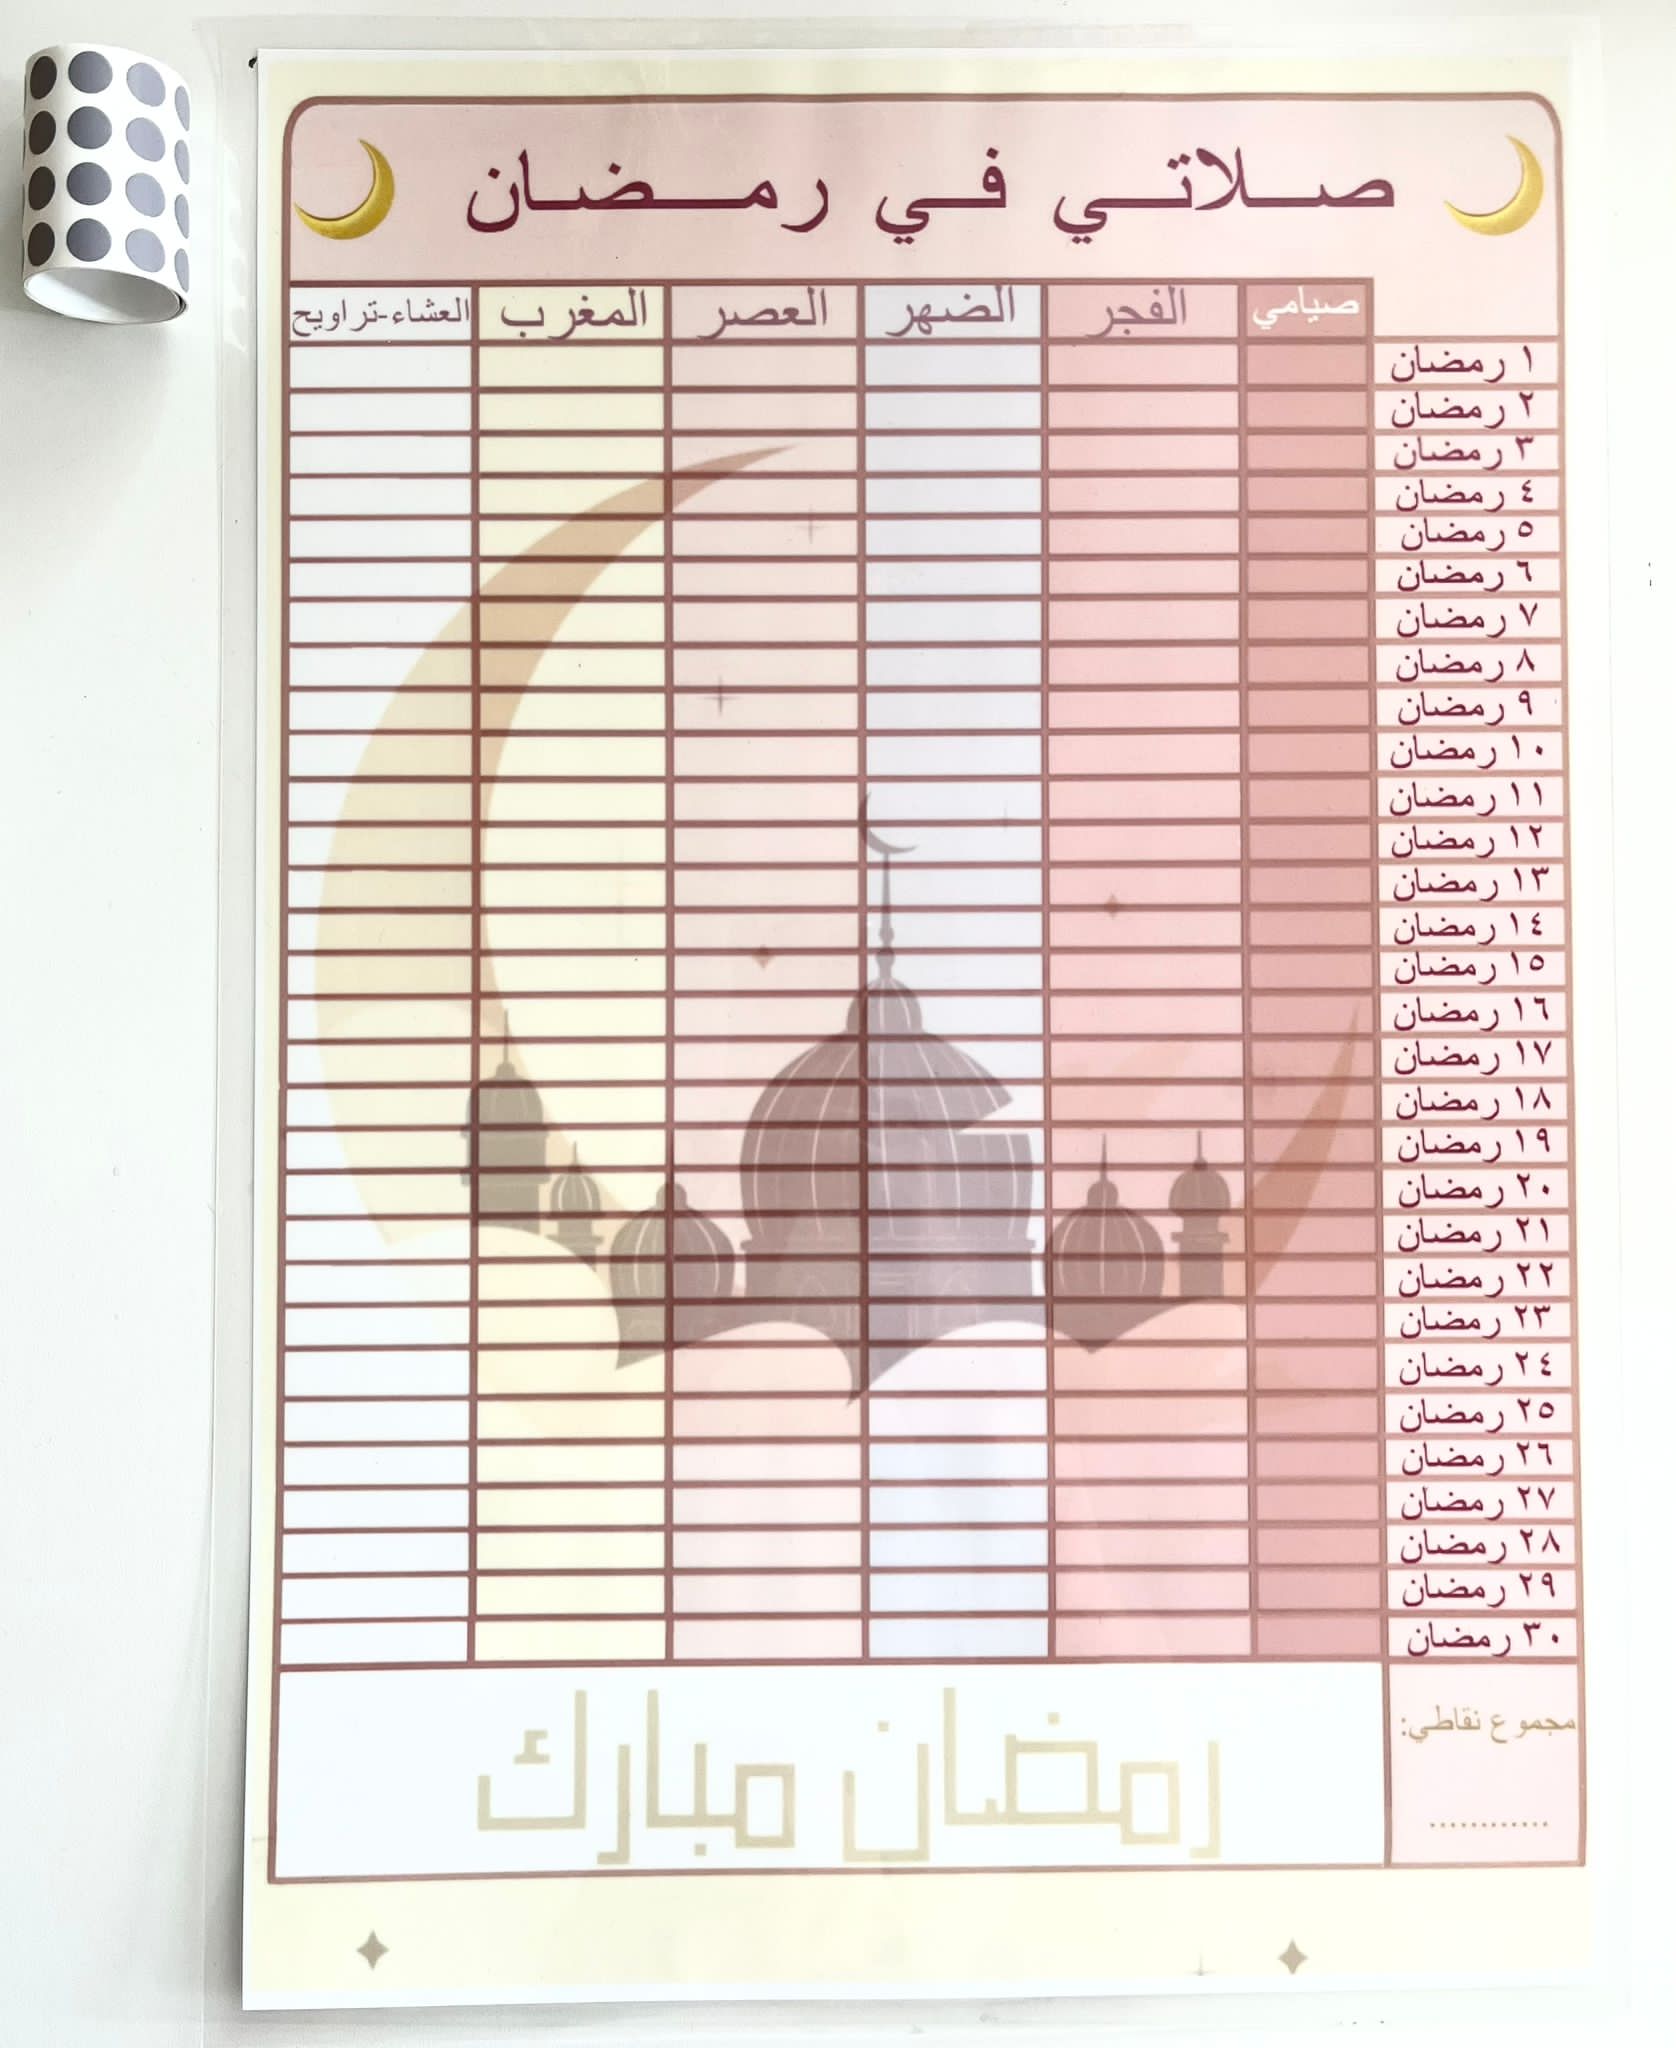 صلاتي في رمضان
صيامي الفجر الضهر العصر المغرب العشاء-تراويح
١ رمضان
٢ رمضان
٣ رمضان
٤ رمضان
٥ رمضان
٦ رمضان
٧ رمضان
٨ رمضان
٩ رمضان
١٠ رمضان
١١ رمضان
١٢ رمضان
١٣ رمضان
١٤ رمضان
١٥ رمضان
١٦ رمضان
١٧ رمضان
١٨ رمضان
١٩ رمضان
٢٠ رمضان
٢١ رمضان
٢٢ رمضان
٢٣ رمضان
٢٤ رمضان
٢٥ رمضان
٢٦ رمضان
٢٧ رمضان
٢٨ رمضان
٢٩ رمضان
٣٠ رمضان
مجموع نقاطي:
............
رمضان مبارك